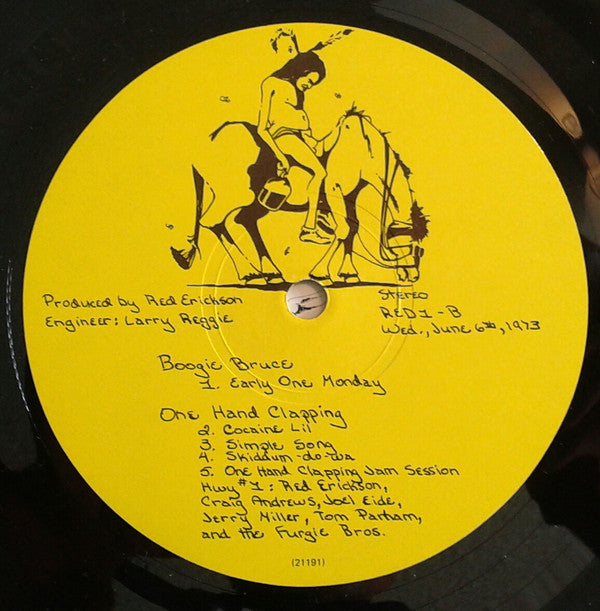 Produced by Red Erickson
Engineer: Larry Reggie
Stereo
RED 1-B
Wed., June 6th, 1973
Boogie Bruce
1. Early One Monday
One Hand Clapping
2. Cocaine Lil
3. Simple Song
4. Skiddum-do-wa
5. One Hand Clapping Jam Session
Hwy #1: Red Erickson,
Craig Andrews, Joel Eide,
Jerry Miller, Tom Parham,
and the Furgie Bros.
(21191)